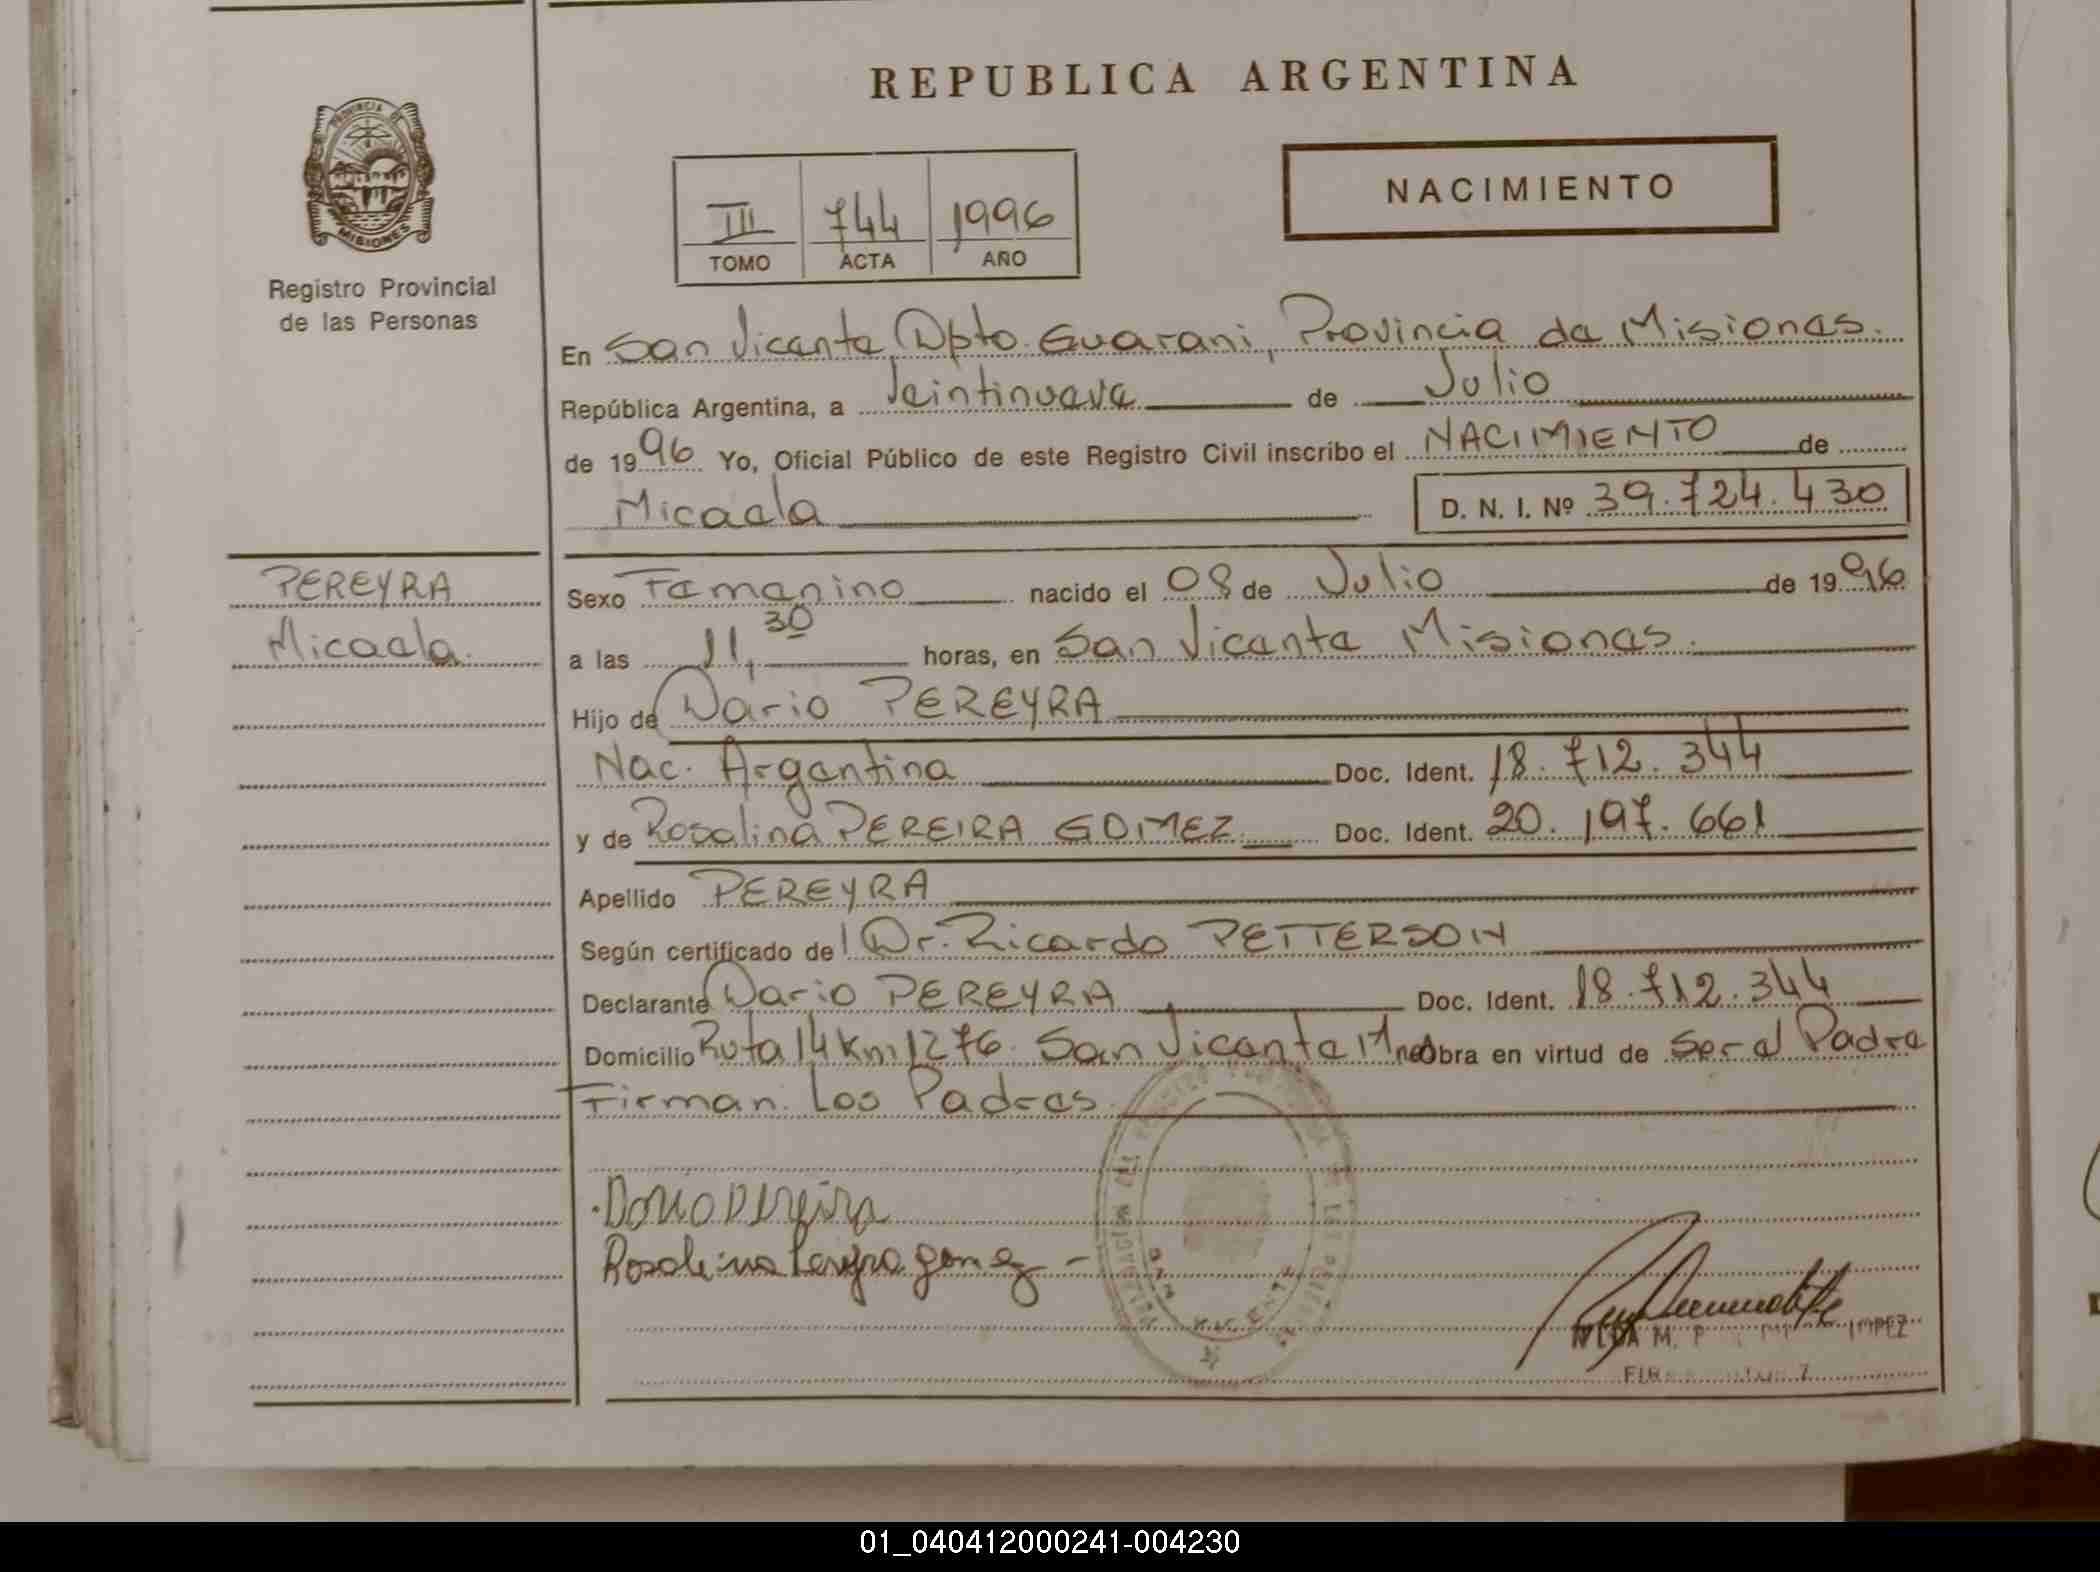 REPUBLICA ARGENTINA
PROVINCIA DE MISIONES
Registro Provincial
de las Personas
III 744 1996
TOMO ACTA AÑO
NACIMIENTO
En San Vicente Dpto. Guarani, Provincia de Misiones.
República Argentina, a Veintinueve de Julio
de 1996 Yo, Oficial Público de este Registro Civil inscribo el NACIMIENTO de
Micaela D. N. I. Nº 39.724.430
PEREYRA
Micaela.
Sexo Femenino nacido el 08 de Julio de 1996
a las 11,30 horas, en San Vicente Misiones.
Hijo de Dario PEREYRA
Nac. Argentina Doc. Ident. 18.712.344
y de Rosalina PEREIRA GOMEZ Doc. Ident. 20.197.661
Apellido PEREYRA
Según certificado del Dr. Ricardo PETTERSON
Declarante Dario PEREYRA Doc. Ident. 18.712.344
Domicilio Ruta 14 Km 1276. San Vicente Mnes Obra en virtud de Ser el Padre
Firman. Los Padres.
Dario Pereira
Rosalina Pereyra gomez -
SAN VICENTE
M. P
01_040412000241-004230